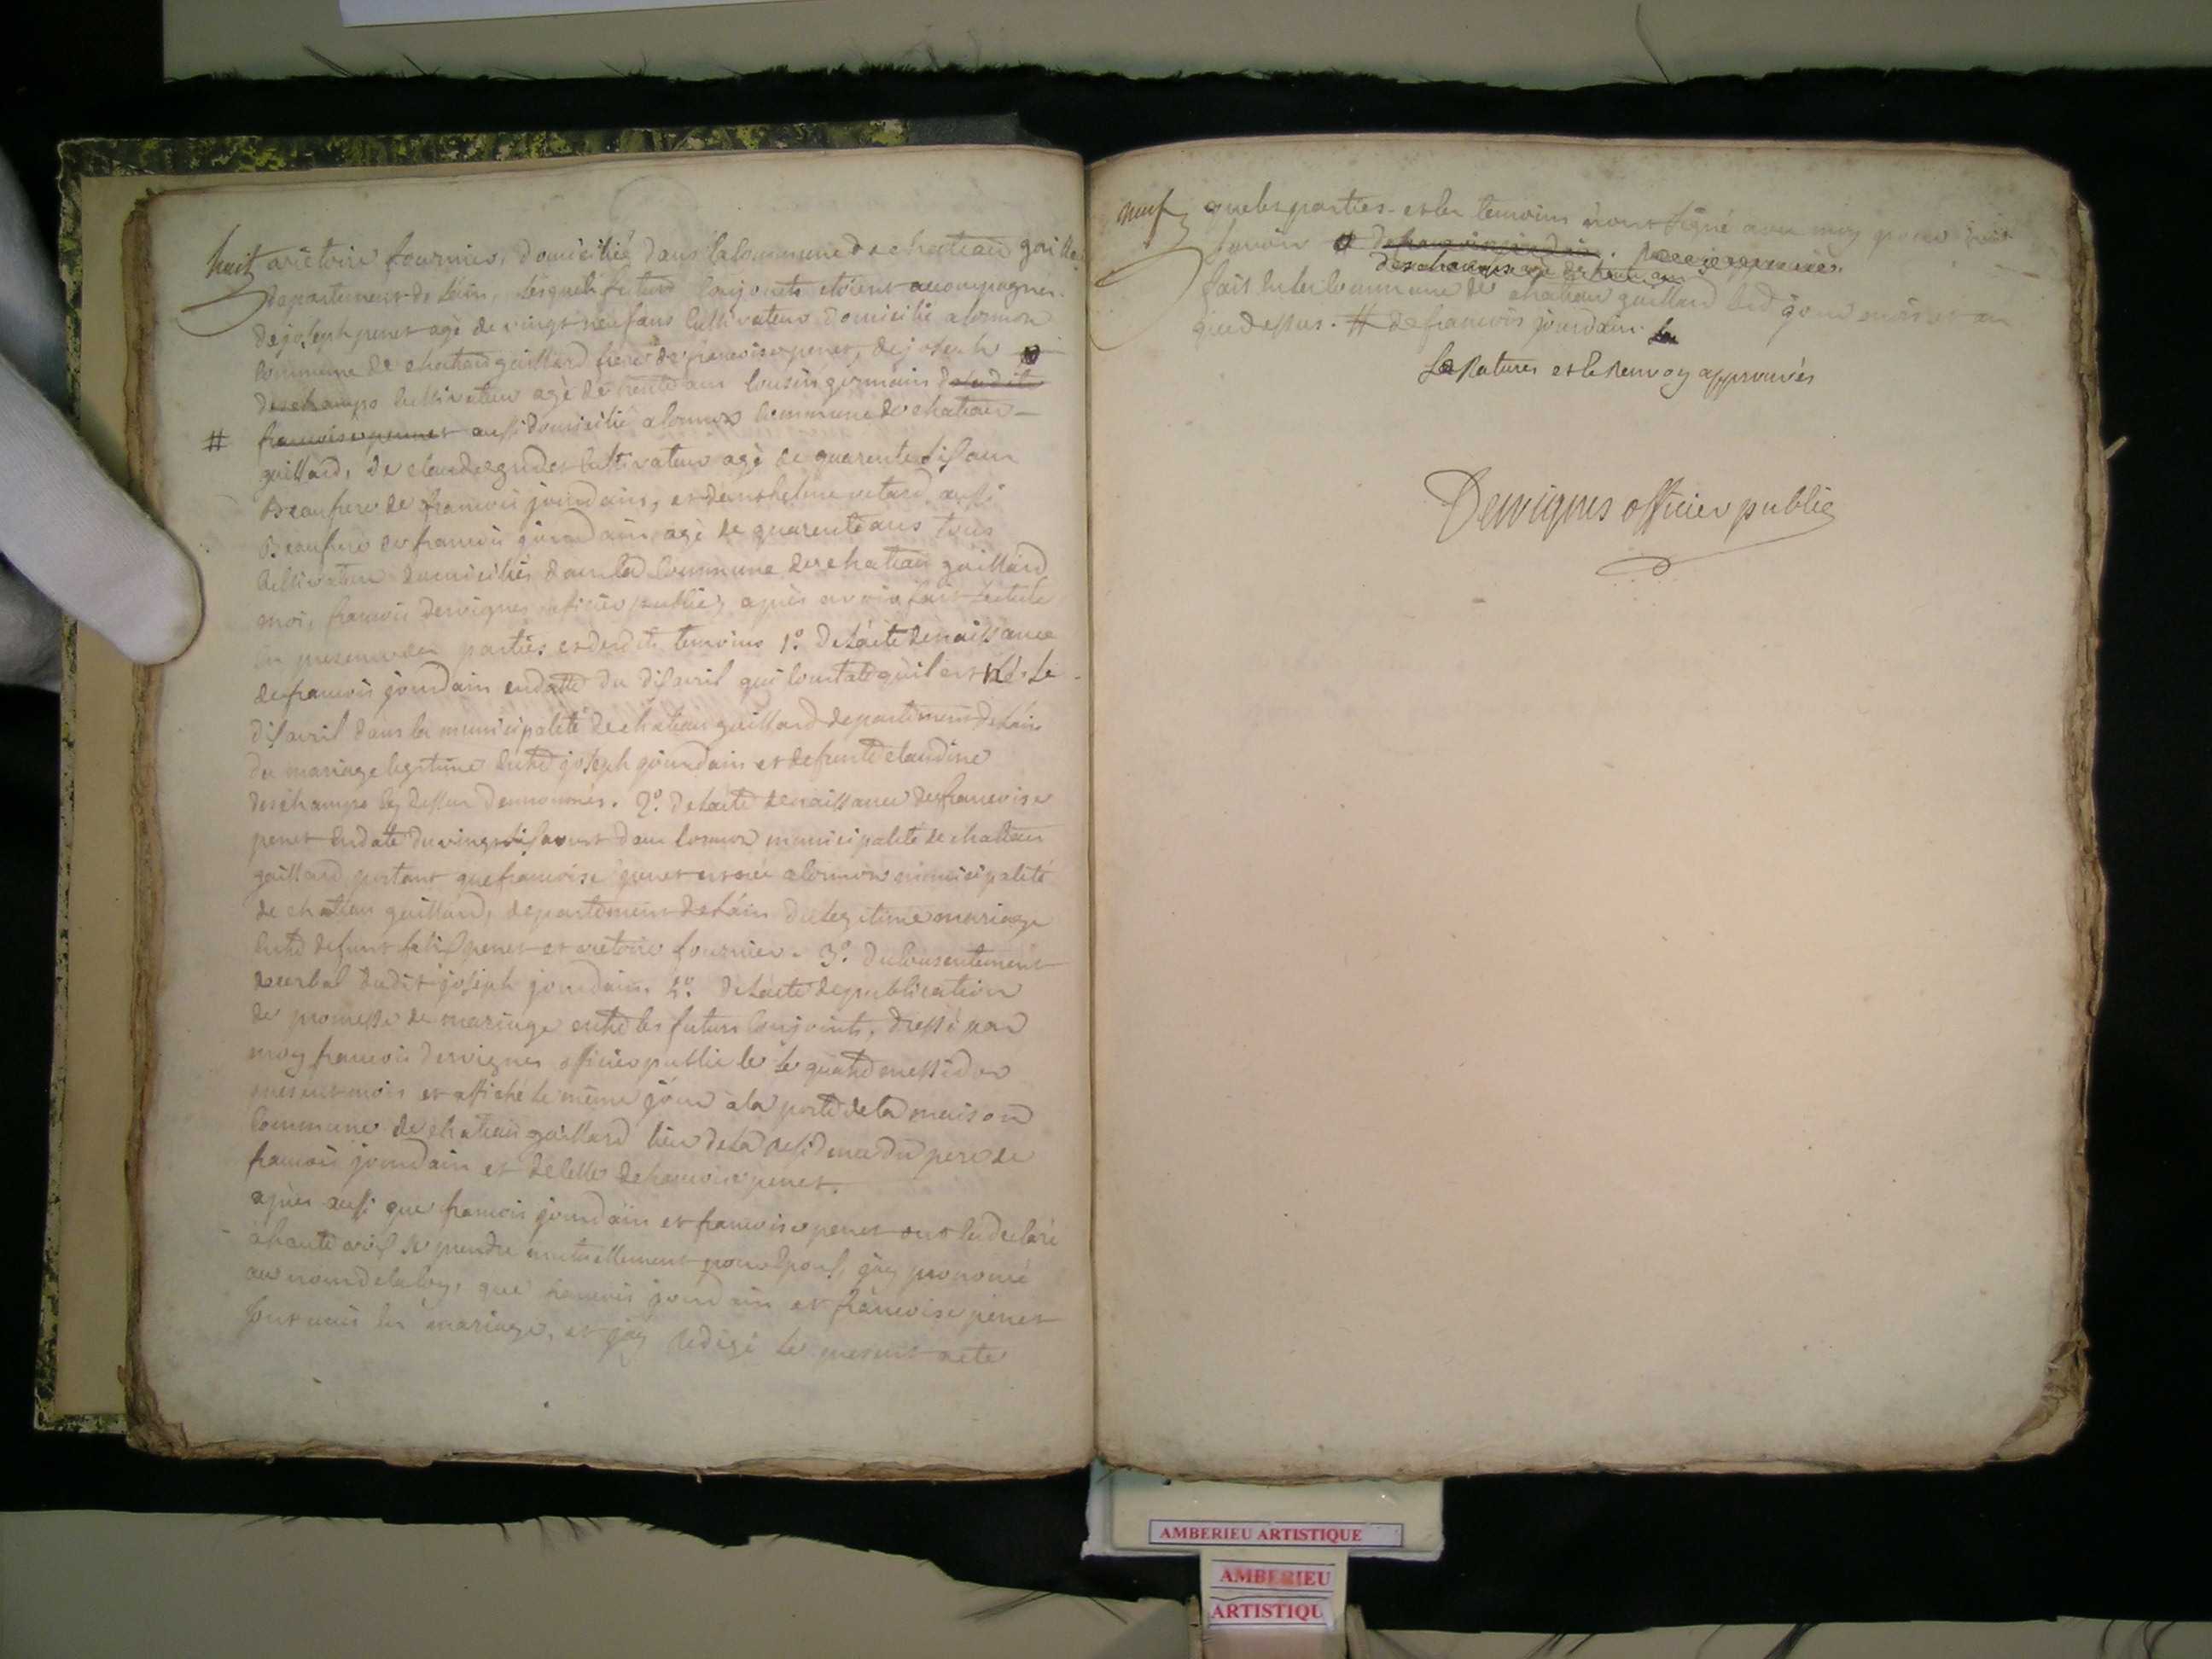 huit victoire fournier, domicilié dans la commune de chateau gaillard
departement de Lain, lesquels futurs conjoints etoient accompagnes
de joseph penet agé de vingt neuf ans cultivateur domicilié a cormoz
commune de chateau gaillard frere de francoise penet, de joseph
deschamps cultivateur agé de trente ans cousin germain de ladite
# francoise penet aussi domicilié a cormoz commune de chateau
gaillard, de claude cultivateur agé de quarente six ans
Beaufrere de francois jourdain, et d'anthelme aussi
Beaufrere de francois jourdain agé de quarente ans tous
cultivateurs domiciliés dans la commune de chateau gaillard
moi, francois dervignes officier public, apres avoir fait lecture
en presence des parties et desdits temoins 1.o de Lacte de naissance
de francois jourdain en datte du dix avril qui constate quil est né le
dix avril dans la municipalité de chateau gaillard departement de Lain
du mariage legitime entre joseph jourdain et defunte claudine
deschamps cy dessus denommés. 2.o de Lacte de naissance de francoise
penet en date du vingt dans cormoz municipalité de chateau
gaillard portant que francoise penet est née a cormoz municipalité
de chateau gaillard, departement de Lain du legitime mariage
entre defunt felix penet et victoire fournier. 3.o du consentement
verbal dudit joseph jourdain. 4.o de Lacte de publication
de promesse de mariage entre les futurs conjoints, dressé par
moy francois dervignes officier public le le quatre messidor
present mois et affiché le même jour a la porte de la maison
commune de chateau gaillard lieu de la residence du pere de
francois jourdain et de celle de francoise penet.
apres aussi que francois jourdain et francoise penet ont eu declaré
a haute voix se prendre mutuellement pour epoux, jay prononcé
au nom de la loy, que francois jourdain et francoise penet
sont unis en mariage, et jay redigé le present acte
neuf que les parties et les temoins nont signé avec moy pour
savoir de francois jourdain.
deschamps agé de trente ans
fait en la commune de chateau gaillard led. jour mois et an
que dessus. # de francois jourdain. Les
La Ratures et le renvoy approuvés
Dervignes officier public
AMBERIEU ARTISTIQUE
AMBERIEU
ARTISTIQU